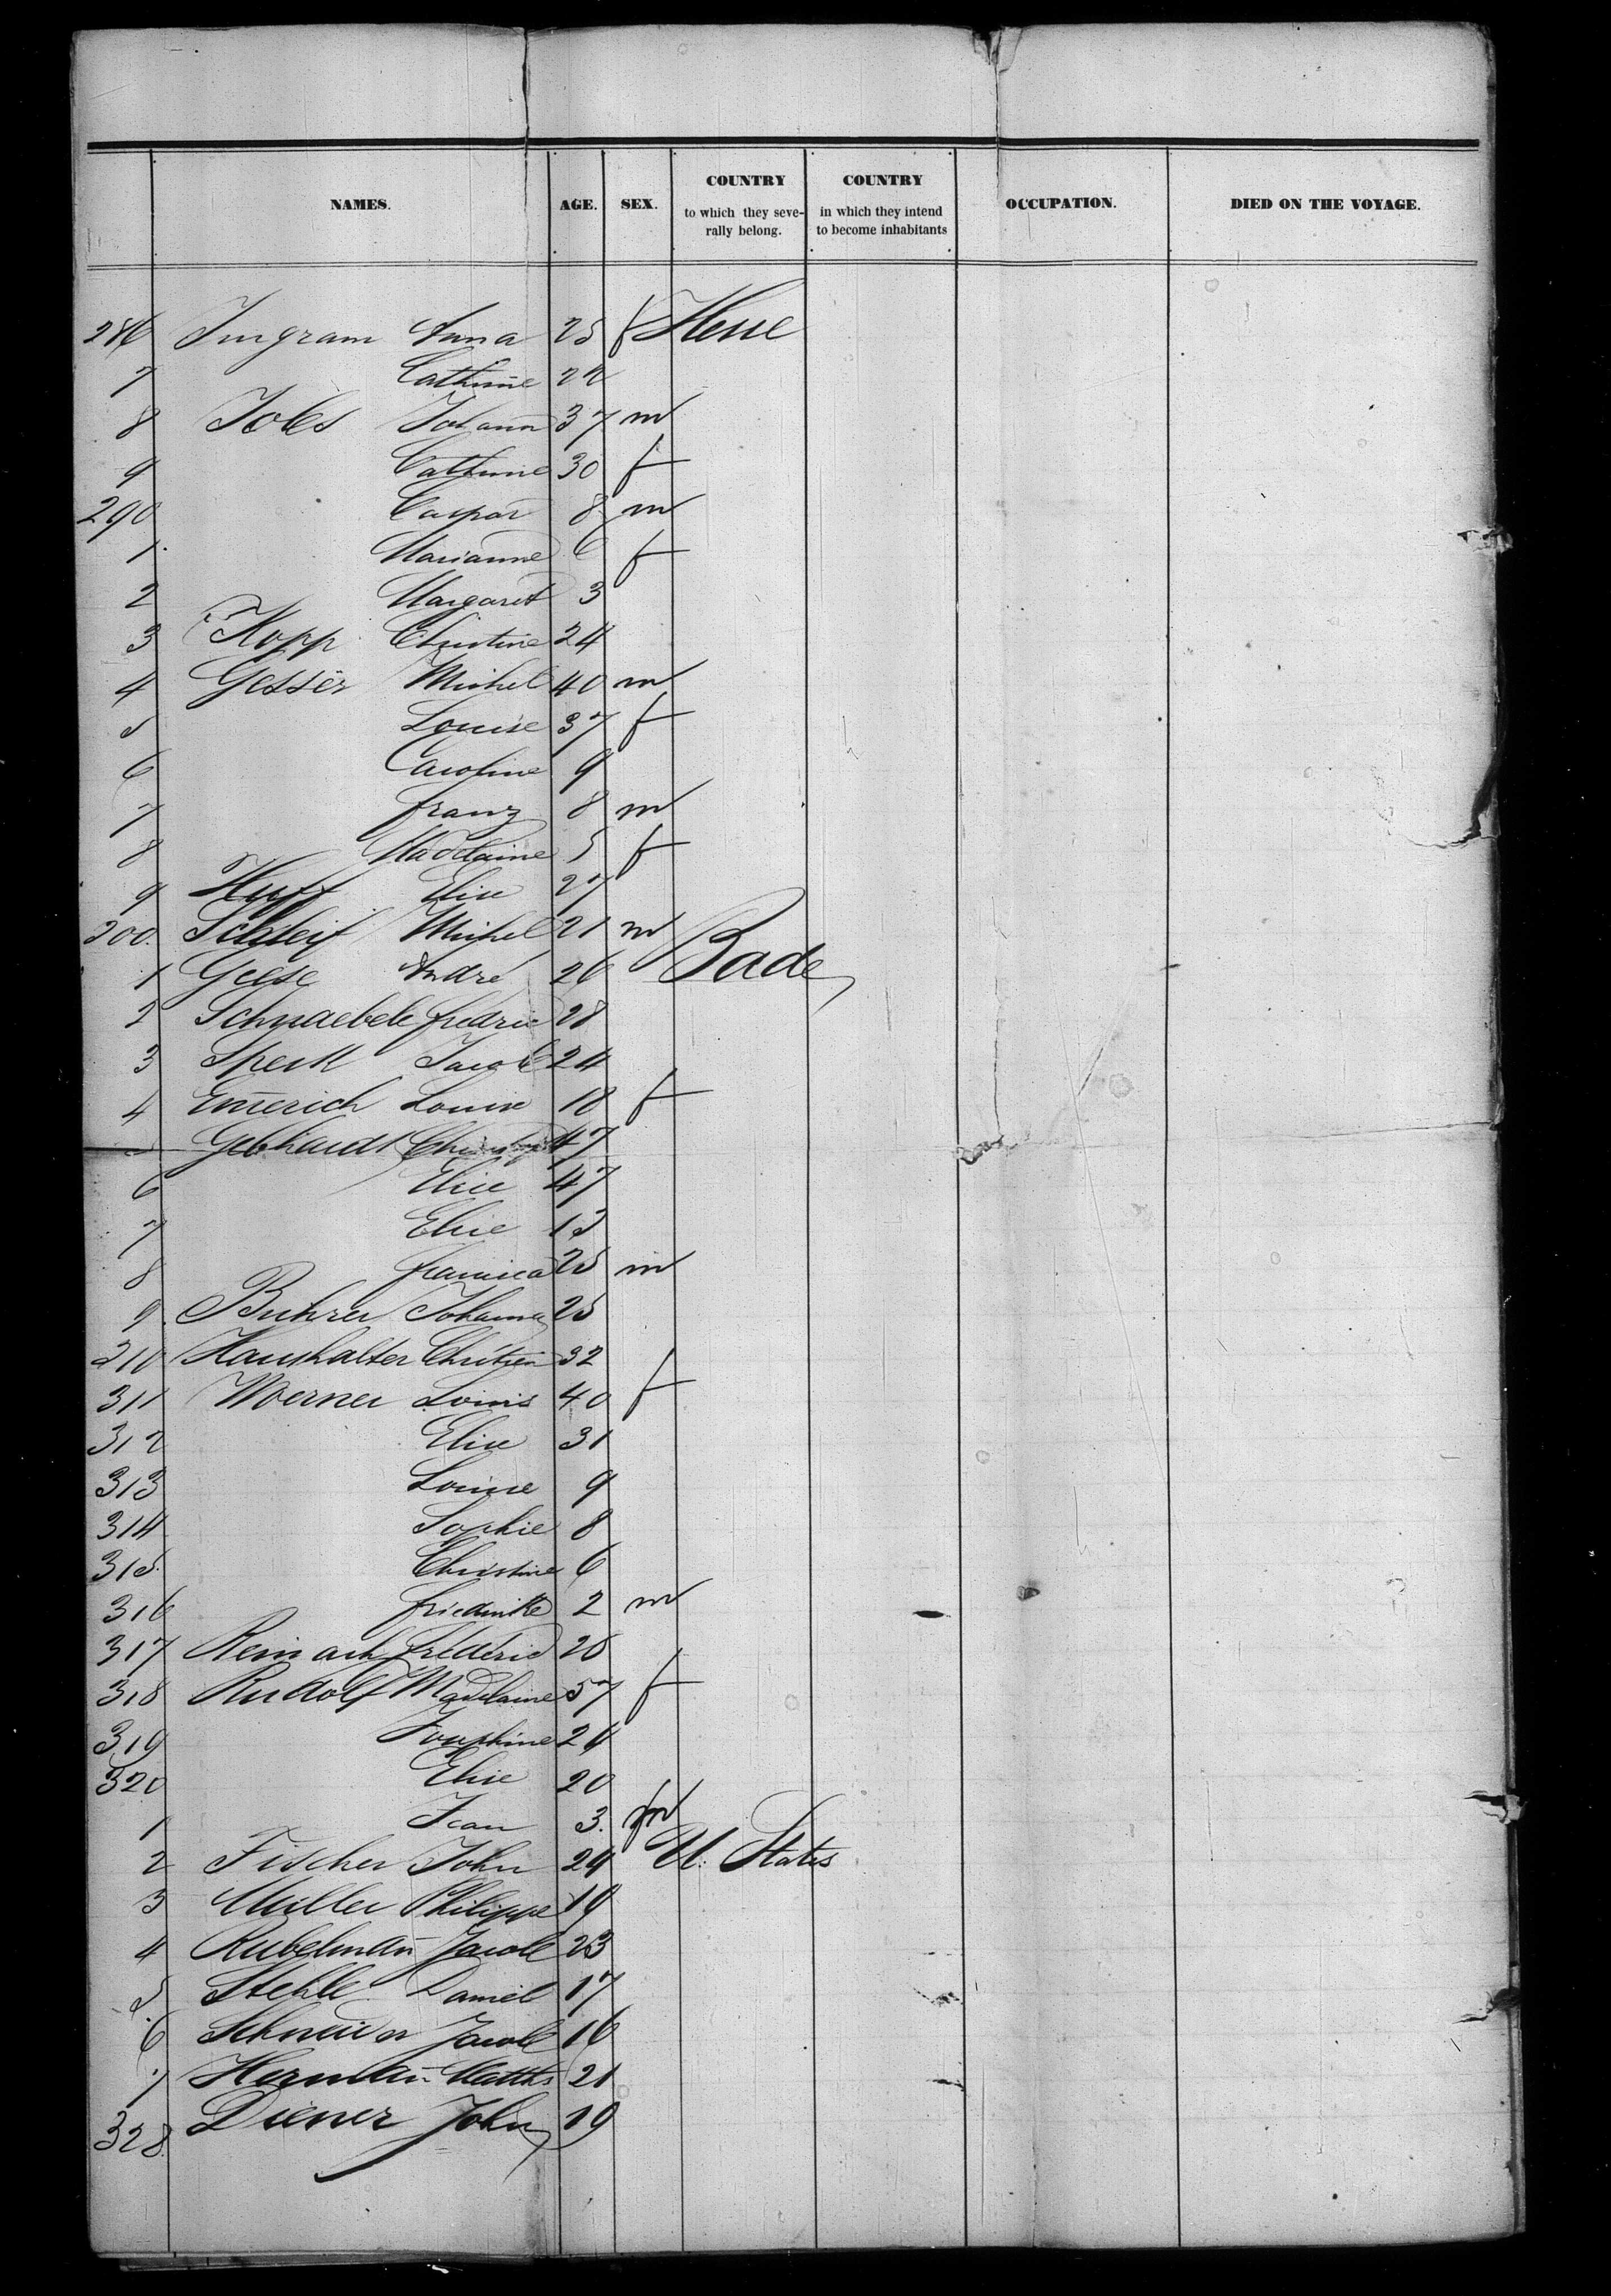 NAMES. AGE. SEX. COUNTRY to which they seve- rally belong. COUNTRY in which they intend to become inhabitants OCCUPATION. DIED ON THE VOYAGE.
286 Ingram Anna 25 f Hesse
7 Cathrine 22
8 Johann 37 m
9 Cathrine 30 f
290 Caspar 8 m
1 Marianne 6 f
2 Margaret 3
3 Kopp Christine 24
4 Gesser Michel 40 m
5 Louise 37 f
6 Caroline 9
7 franz 8 m
8 Madelaine 5 f
9 Huff Elise 27
300. Schleif Michel 21 m Bade
1 Geese André 26
2 Schnaebele fredric 28
3 Jacob 24
4 Em̄erich Louise 18 f
Gebhardt 47
6 Elise 47
7 Elise 13
8 25 m
9 Buhrer Johann 25
310 Haushalter Chrétien 32
311 Woerner Louis 40 f
312 Elise 31
313 Louise 9
314 Sophie 8
315. Christine 6
316 friedricke 2 m
317 Frederic 28
318 Rudolf Madelaine 57 f
319 Josephine 24
320 Elise 20
1 Jean 3. m
2 Fischer John 24 U. States
3 Müller Philippe 19
4 Rubelman̄ Jacob 23
5 Stehle Daniel 17
6 Schneider Jacob 16
7 Herman̄ Matths 21
328. Diener John 19